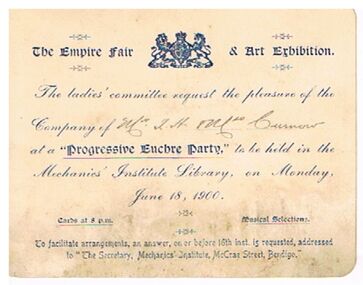 The Empire Fair & Art Exhibition.
The ladies' committee request the pleasure of the
Company of Mr. J. H. & Mrs Curnow
at a "Progressive Euchre Party," to be held in the
Mechanics' Institute Library, on Monday,
June 18, 1900.
Cards at 8 p.m. Musical Selections.
To facilitate arrangements, an answer, on or before 16th inst. is requested, addressed
to "The Secretary, Mechanics' Institute, McCrae Street, Bendigo."